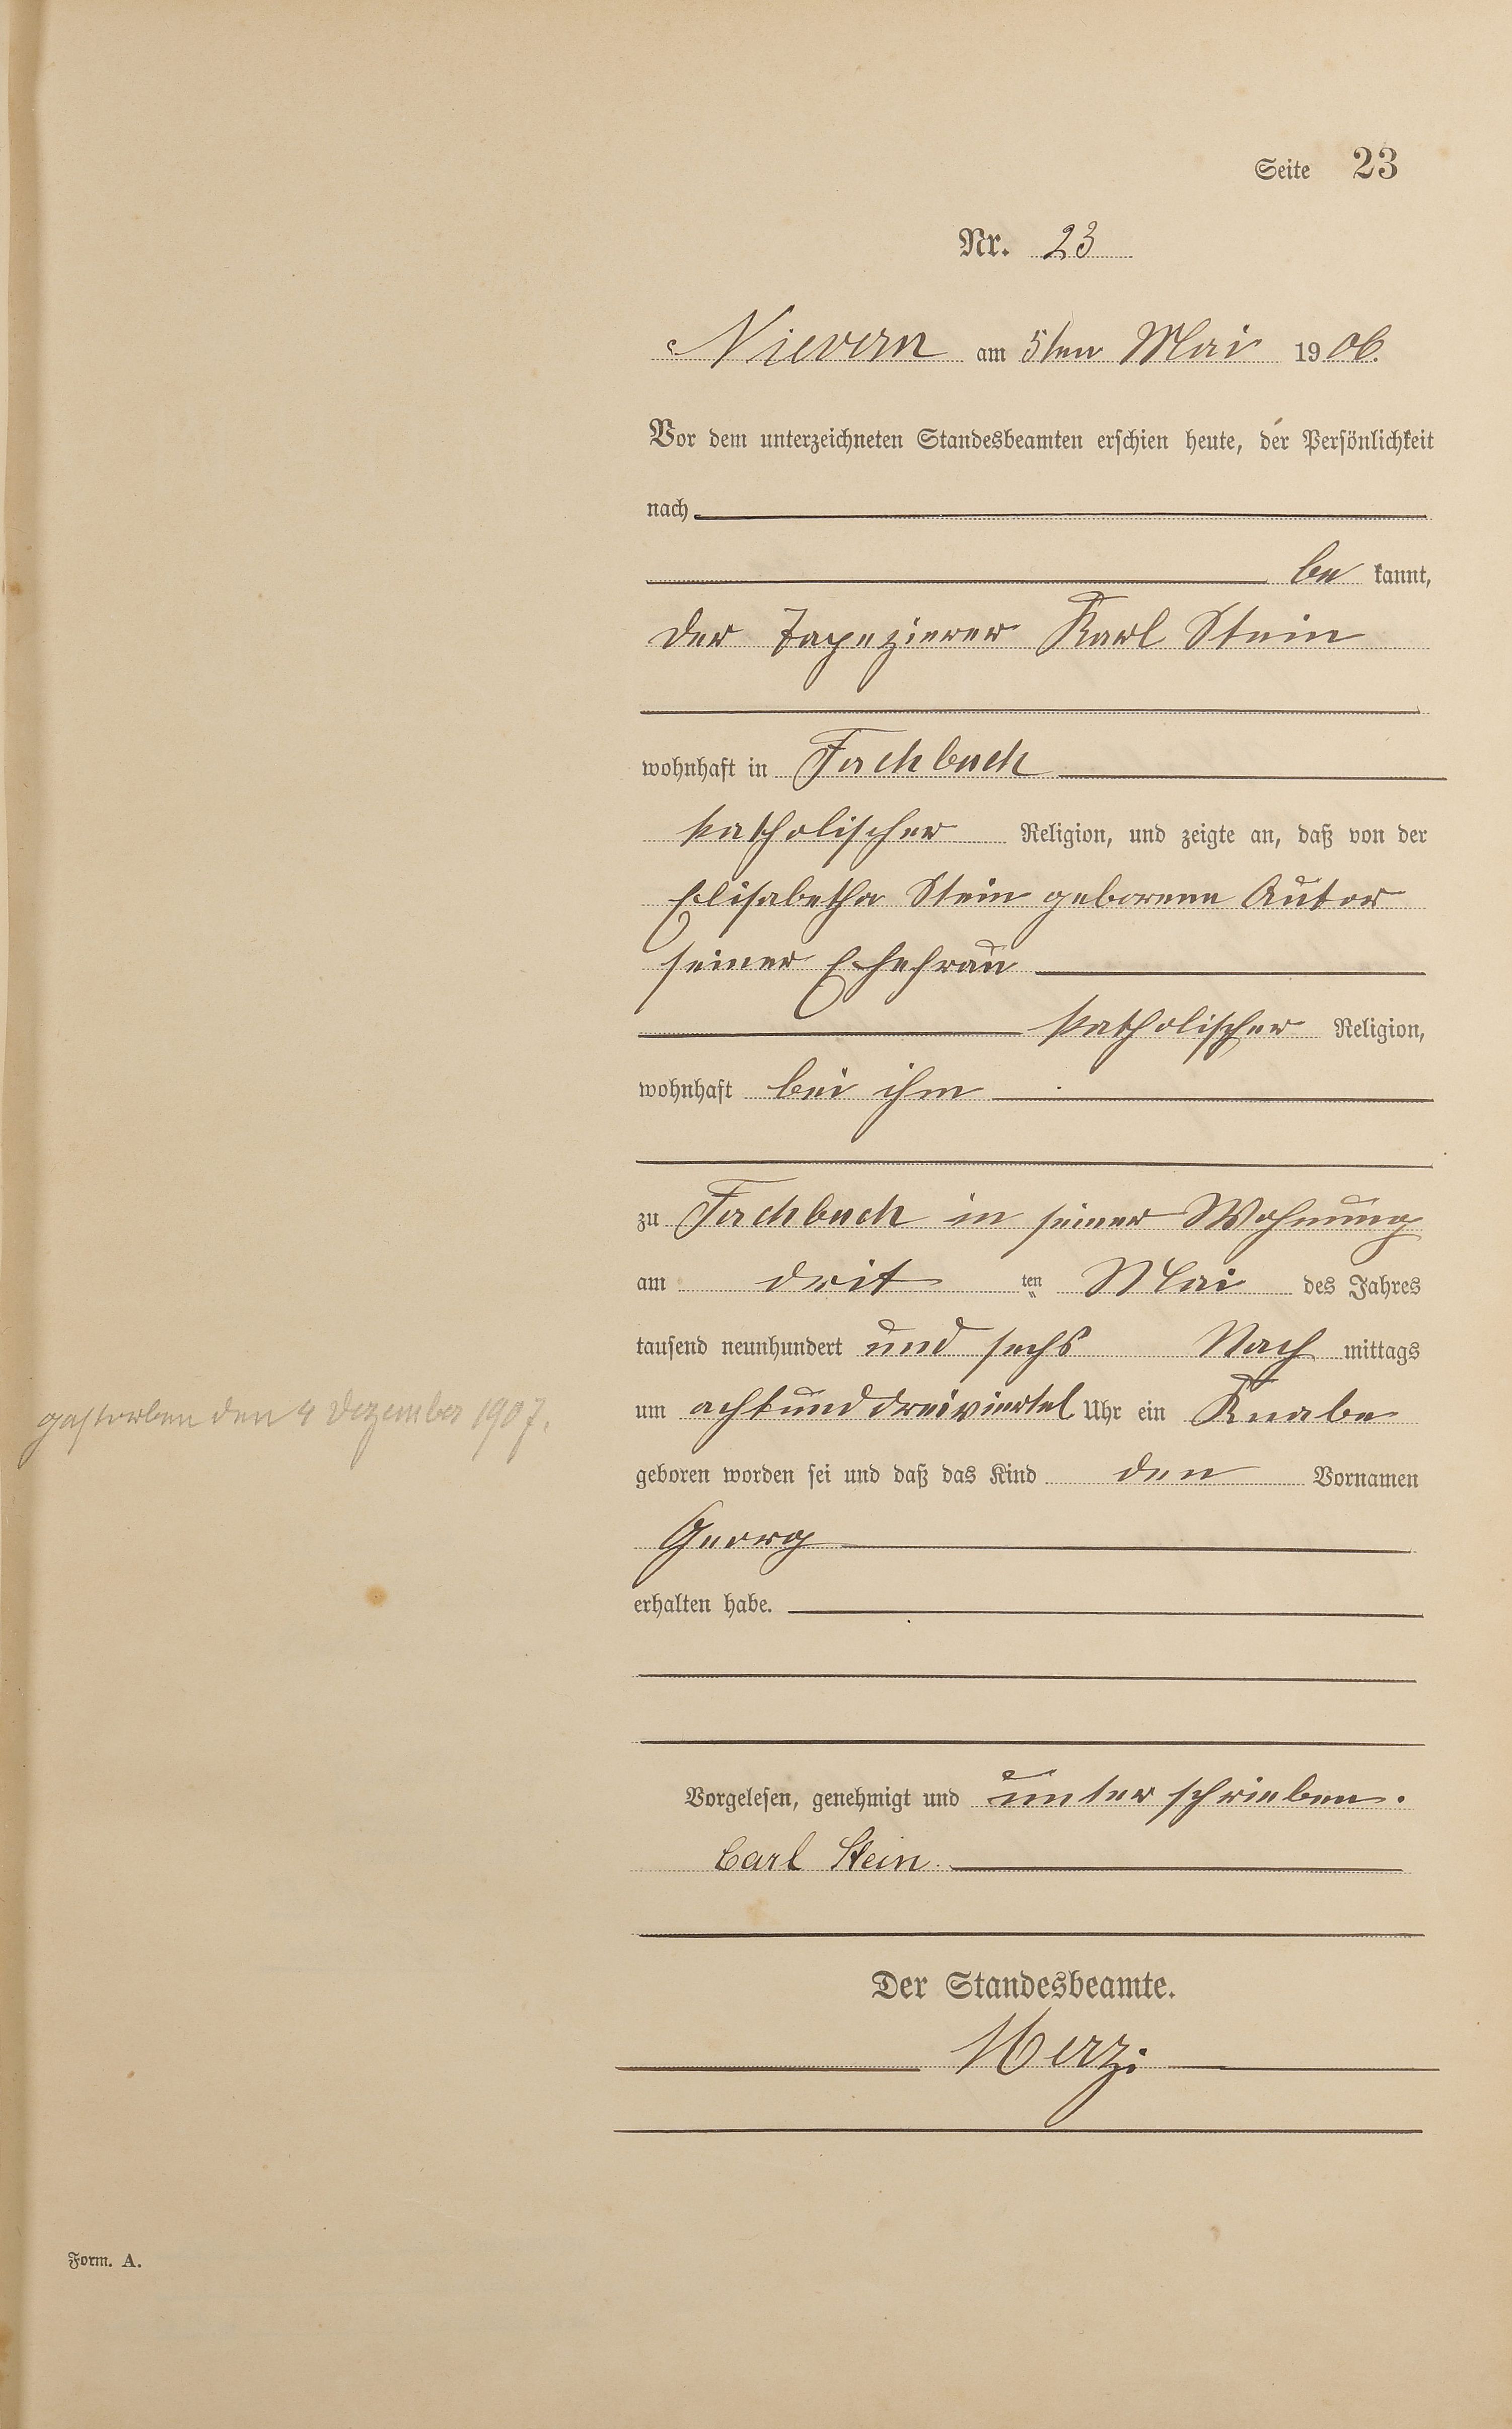 Seite 23
Nr. 23
Nievern am 5ten Mai 1906.
Vor dem unterzeichneten Standesbeamten erschien heute, der Persönlichkeit
nach
be kannt,
der Tapezierer Karl Stein
wohnhaft in Fachbach
katholischer Religion, und zeigte an, daß von der
Elisabetha Stein geborene Autor
seiner Ehefrau
katholischer Religion,
wohnhaft bei ihm
zu Fachbach in seiner Wohnung
am drit ten Mai des Jahres
tausend neunhundert und sechs Nach mittags
um acht und dreiviertel Uhr ein Knabe
gestorben den 4 Dezember 1907.
geboren worden sei und daß das Kind den Vornamen
Georg
erhalten habe.
Vorgelesen, genehmigt und unterschrieben.
Carl Stein
Der Standesbeamte.
Merz.
Form. A.